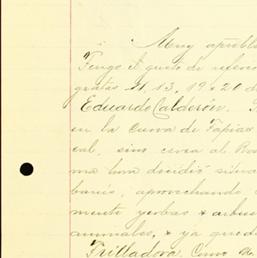 Muy apreble
Tengo el gusto de referir
gratas 11, 13, 19 & 20 d
Eduardo Calderón.
en la Cueva de Tapias
cal, sino cerca al Ro
ma han decidido situa
banis, aprovechando
mente yerbas & arbus
animales, & ya qued
Trilladora. Como